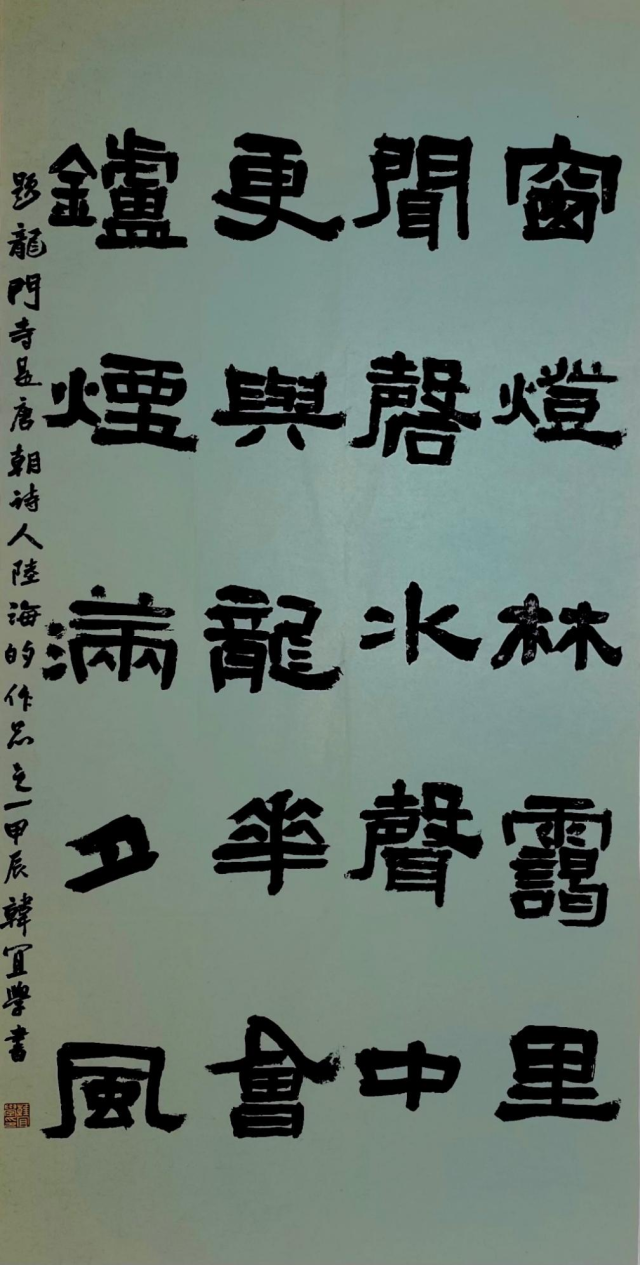 窗燈林靄里
聞磬水聲中
更與龍華會
鑪煙滿夕風
題龍門寺是唐朝诗人陸海的作品之一甲辰韓宜學書